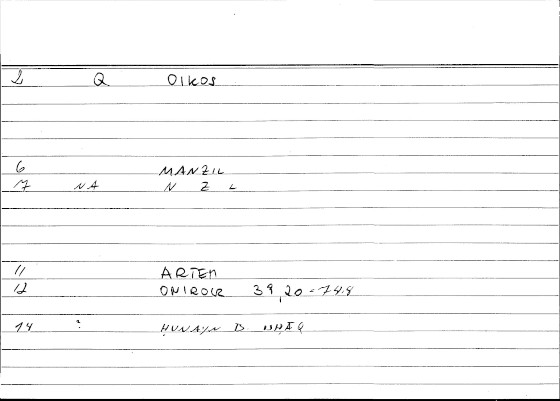 2 Q OIKOS
6 MANZIL
17 NA N Z L
11 ARTEM
12 ONIROCR 39,20 - 74.9
14 : ḤUNAYN B ISḤĀQ